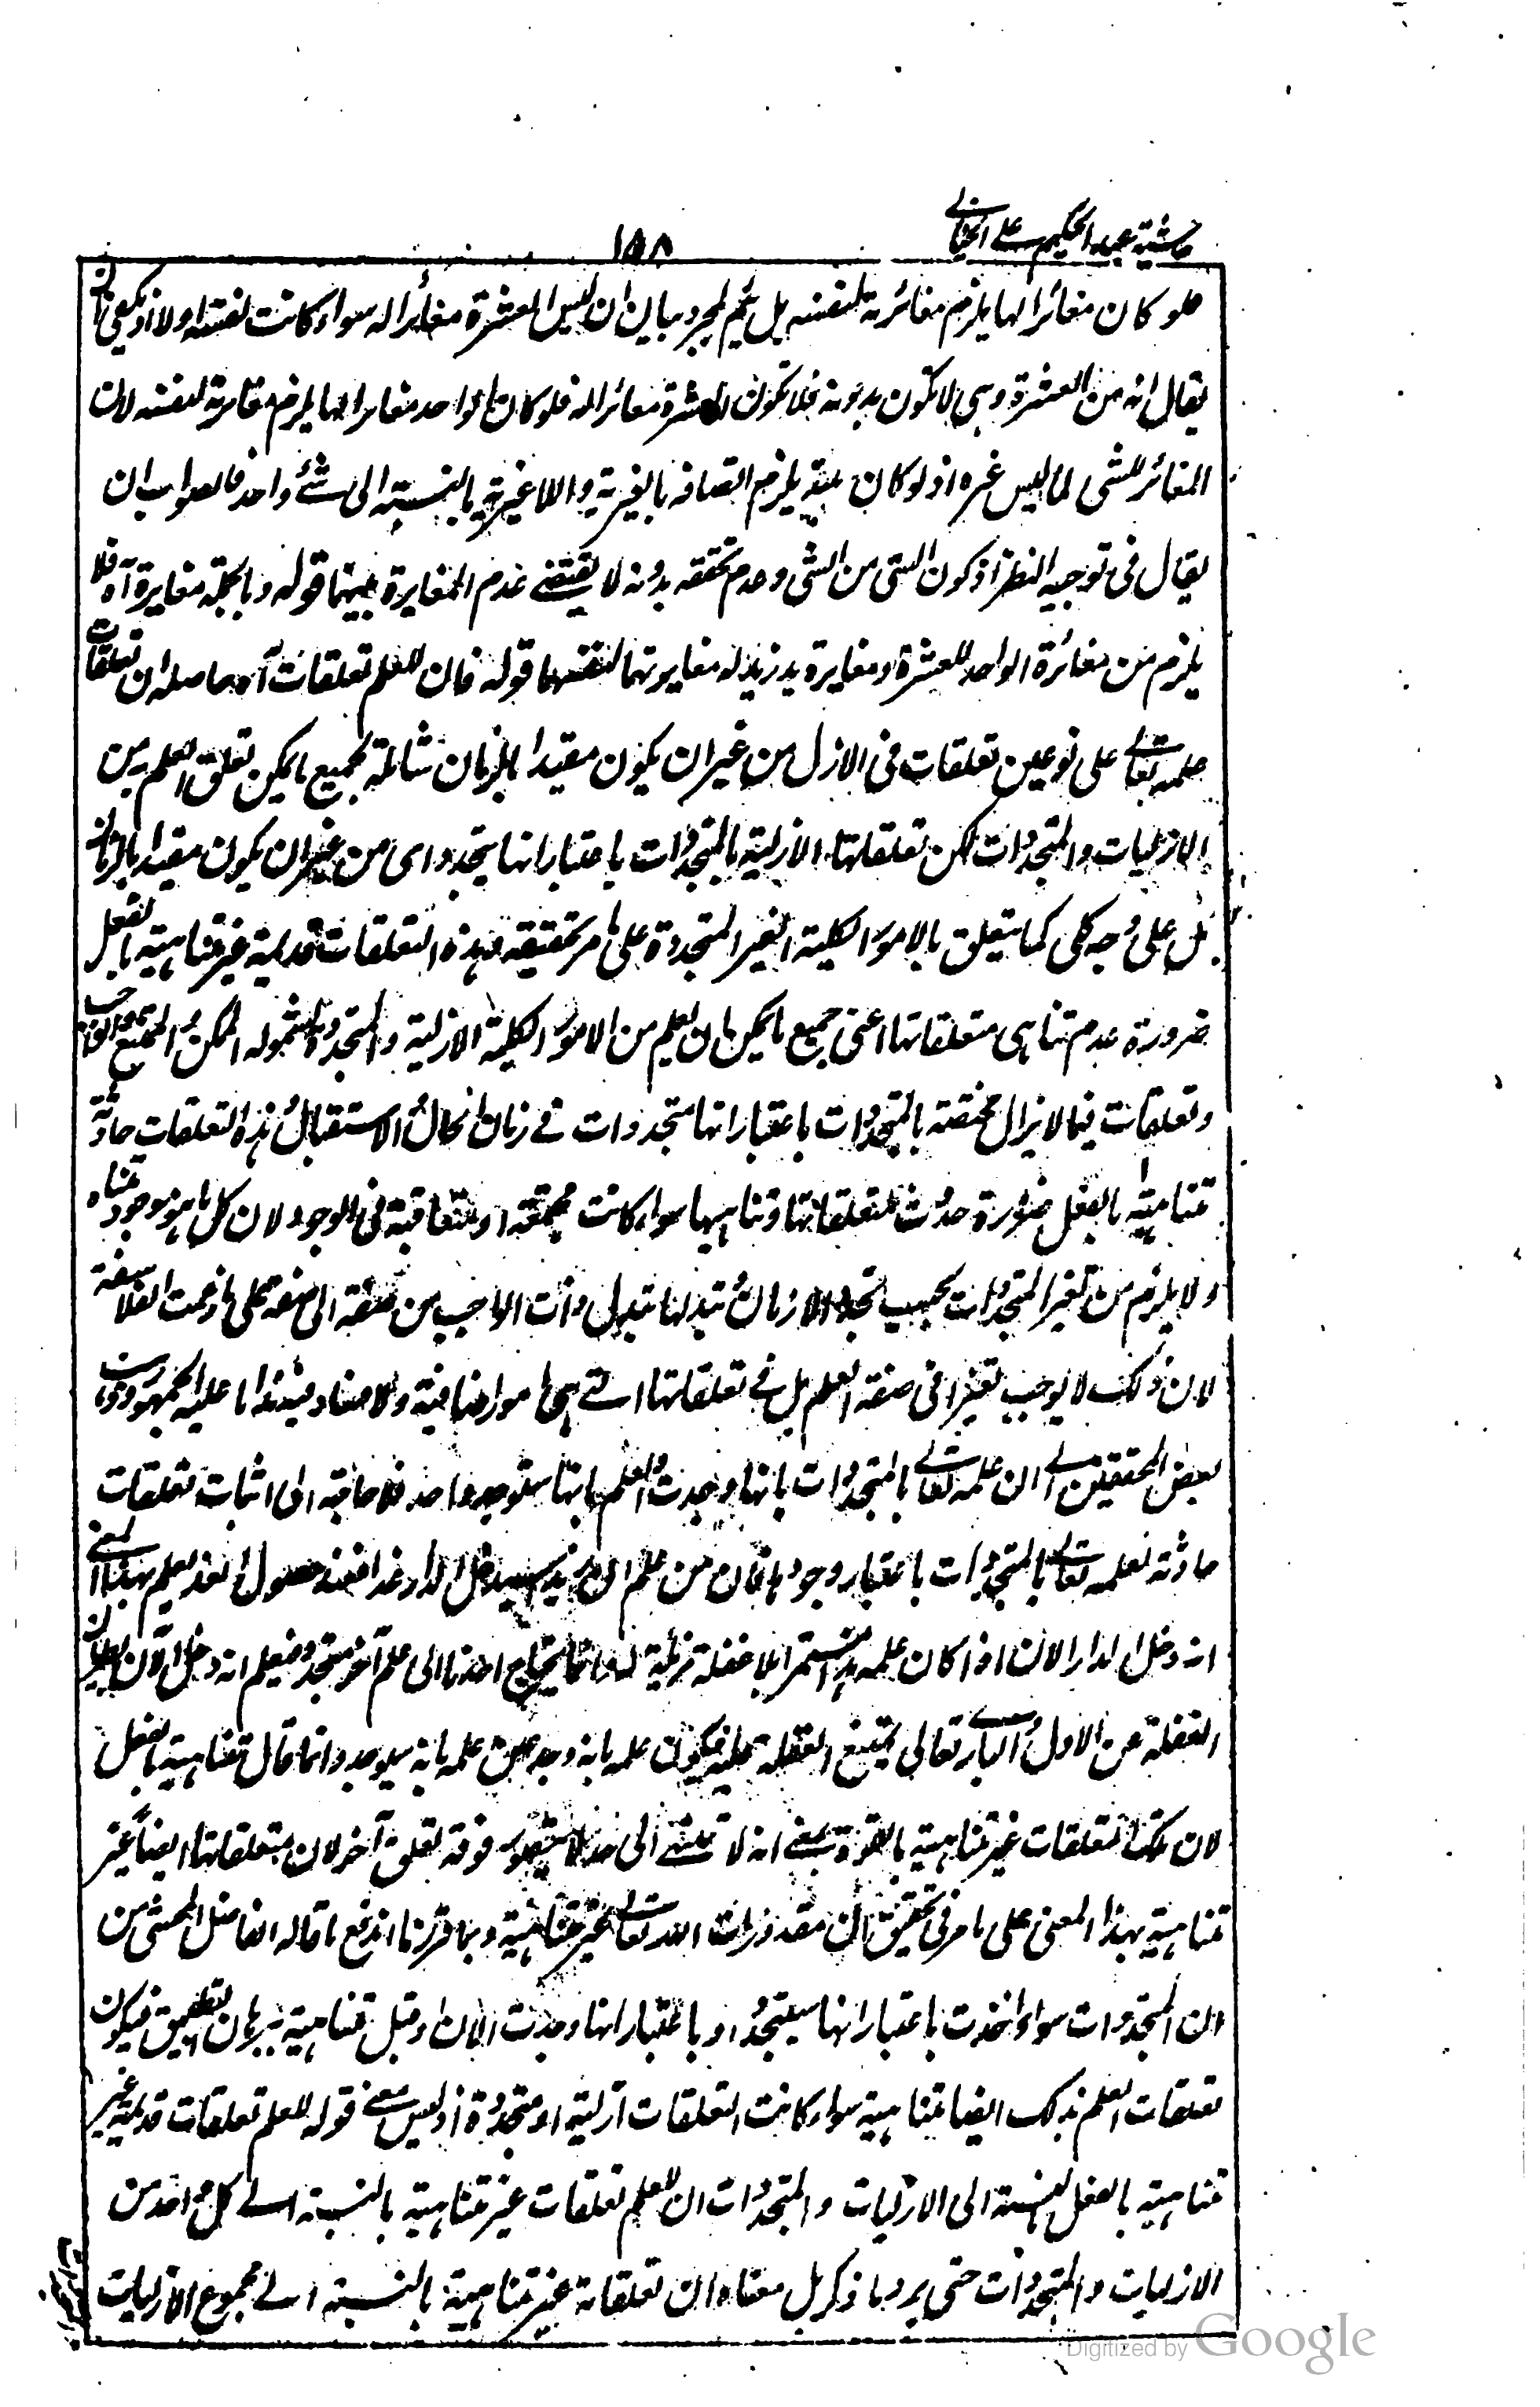 حاشية عبد الحكيم على الخيالي
١٥٨
فلو كان مغائرا لها يلزم مغائرته لنفسه بل يتم بمجرد بيان ان ليس العشرة مغائرا له سواء كانت نفسه اولا اذ يكفي ان
يقال انه من العشرة وهي لا تكون بدونه فلا تكون العشرة مغائرا له فلو كان الواحد مغايرا لها يلزم مغايرته لنفسه لان
المغائر للشى لما ليس غيره اذ لو كان عينه يلزم اتصافه بالغيرية واللاغيرية بالنسبة الى شئ واحد فالصواب ان
يقال فى توجيه النظر اذ كون الشى من الشى وعدم تحققه بدونه لا يقتضى عدم المغايرة بينهما قوله وبالجملة مغايرة آه فلا
يلزم من مغائرة الواحد للعشرة ومغايرة يد زيد له مغايرتهما لنفسهما قوله فان للعلم تعلقات آه حاصله ان تعلقات
علمه تعالى على نوعين تعلقات فى الازل من غير ان يكون مقيدا بالزمان شاملة لجميع ما يمكن تعلق العلم به من
الازليات والمتجددات لكن تعلقاتها الازلية بالمتجددات باعتبار انها يتجدد اى من غير ان يكون مقيدا بالزمان
بل على وجه كلى كما يتعلق بالامور الكلية الغير المتجددة على ما مر تحقيقه وهذه التعلقات قديمة غير متناهية بالفعل
ضرورة عدم تناهى متعلقاتها اعنى جميع ما يمكن ان يعلم من الامور الكلية الازلية والمتجددة لشموله الممكن والممتنع والواجب
وتعلقات فيما لا يزال مختصة بالمتجددات باعتبار انها متجددات فى زمان الحال او الاستقبال وهذه التعلقات حادثة
متناهية بالفعل ضرورة حدوث متعلقاتها وتناهيها سواء كانت مجتمعة او متعاقبة فى الوجود لان كل ما هو موجود متناه
ولا يلزم من تغير المتجددات بحسب تجدد الازمان وتبدلها تبدل ذات الواجب من صفة الى صفة على ما زعمت الفلاسفة
لان ذلك لا يوجب تغيرا فى صفة العلم بل فى تعلقاتها التى هى امور اضافية ولا فساد فيه هذا ما عليه الجمهور وذهب
بعض المحققين الى ان علمه تعالى بالمتجددات بانها وجدت والعلم بانها ستوجد واحد فلا حاجة الى اثبات تعلقات
حادثة لعلمه تعالى بالمتجددات باعتبار وجودها فان من علم ان زيدا سيدخل الدار غدا فعند حصول الغد يعلم بهذا العلم
انه دخل الدار الان اذا كان علمه هذا مستمرا بلا غفلة مزيلة له وانما يحتاج احدنا الى علم آخر متجدد يعلم انه دخل الآن لطريان
الغفلة عن الاول والبارى تعالى يمتنع الغفلة عليه فيكون علمه بانه وجد عين علمه بانه سيوجد وانما قال متناهية بالفعل
لان تلك التعلقات غير متناهية بالقوة بمعنى انه لا تنتهى الى حد لا يتصور فوقه تعلق آخر لان متعلقاتها ايضا غير
متناهية بهذا المعنى على ما مر فى تحقيق ان مقدورات الله تعالى غير متناهية وبما قررنا اندفع ما قاله الفاضل المحشى من
ان المتجددات سواء اخذت باعتبار انها سيتجدد او باعتبار انها وجدت الان او قبل متناهية ببرهان التطبيق فيكون
تعلقات العلم بذلك ايضا متناهية سواء كانت التعلقات ازلية او متجددة اذ ليس معنى قوله للعلم تعلقات قديمة غير
متناهية بالفعل بالنسبة الى الازليات والمتجددات ان للعلم تعلقات غير متناهية بالنسبة الى كل واحد من
الازليات والمتجددات حتى يرد ما ذكر بل معناه ان تعلقاته غير متناهية بالنسبة الى مجموع الازليات
Digitized by Google